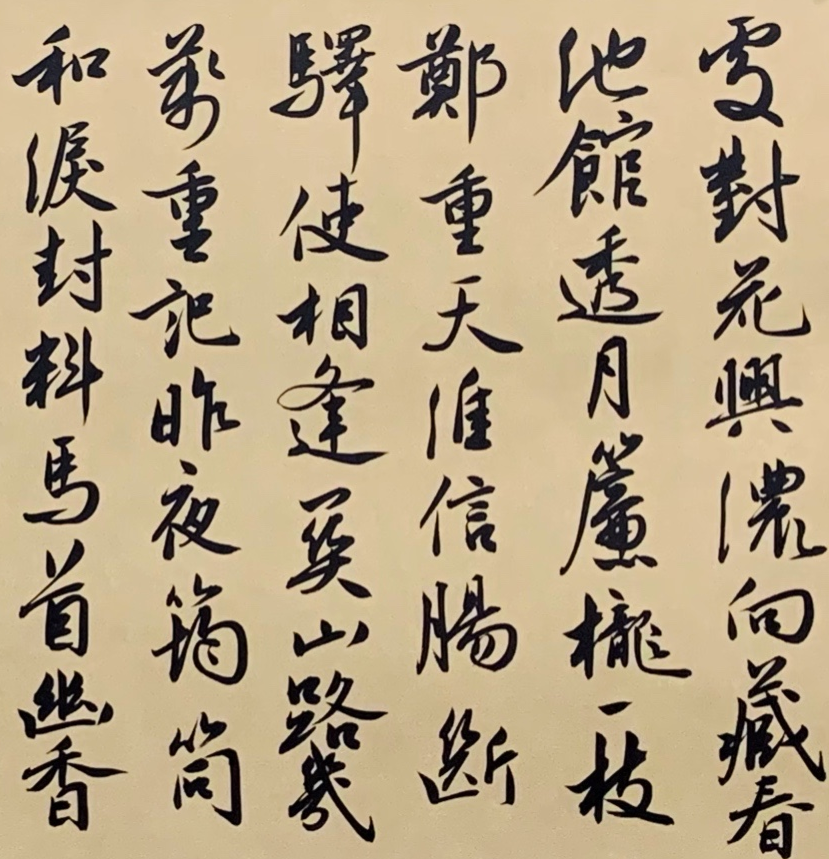 處對花興濃向藏春
池館透月簾櫳一枝
鄭重天涯信腸斷
驛使相逢關山路幾
萬重記昨夜筠筒
和淚封料馬首幽香